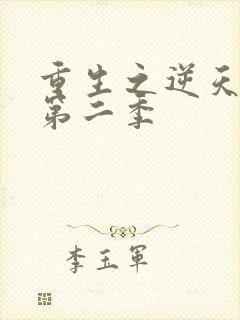 重生之逆天
第二季
李玉军